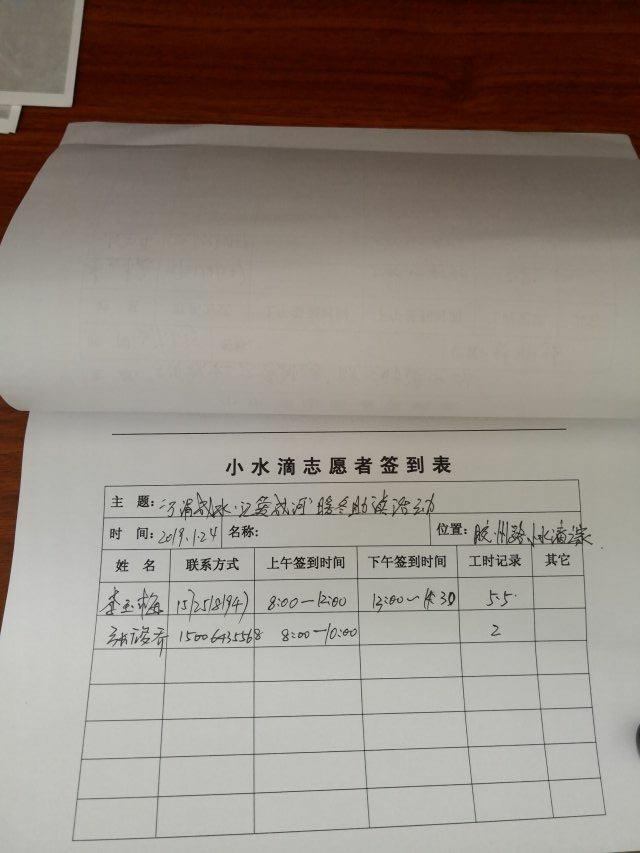 小水滴志愿者签到表
主 题:"滴水·汇爱成河"暖冬助读活动
时 间:2019.1.24 名称: 位置:胶州路小水滴之家
姓 名 联系方式 上午签到时间 下午签到时间 工时记录 其它
李玉梅 8:00—12:00 13:00— 5.5
15006435568 8:00—10:00 2